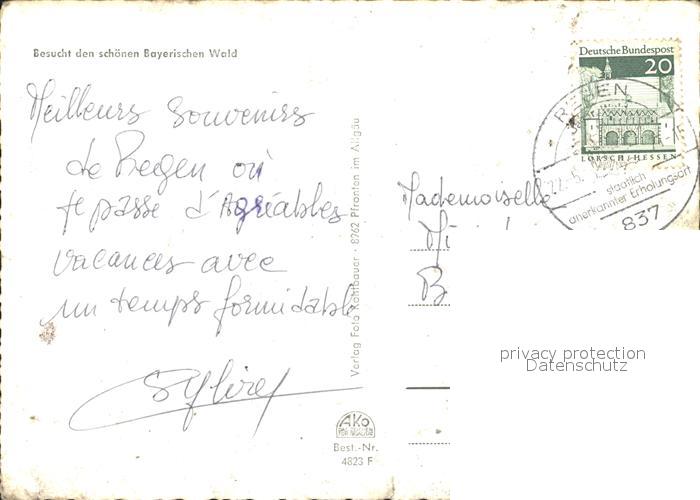 Besucht den schönen Bayerischen Wald
Meilleurs souvenirs
de Regen où
je passe d'Agréables
vacances avec
un temps formidable
Verlag Foto Kohlbauer · 8962 Pfronten im Allgäu
Deutsche Bundespost
20
LORSCH/HESSEN
REGEN
staatlich
anerkannter Erholungsort
837
Mademoiselle
Mi
B
privacy protection
Datenschutz
AKO
Best.-Nr.
4823 F